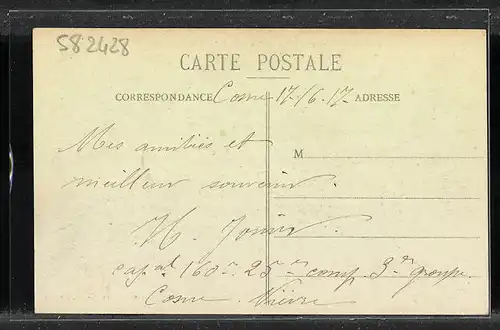 582428
CARTE POSTALE
CORRESPONDANCE Cosne 17-6-17 ADRESSE
Mes amitiés et
M
meilleur souvenir.
H.
160e 25e comp 3e groupe
Cosne Nièvre